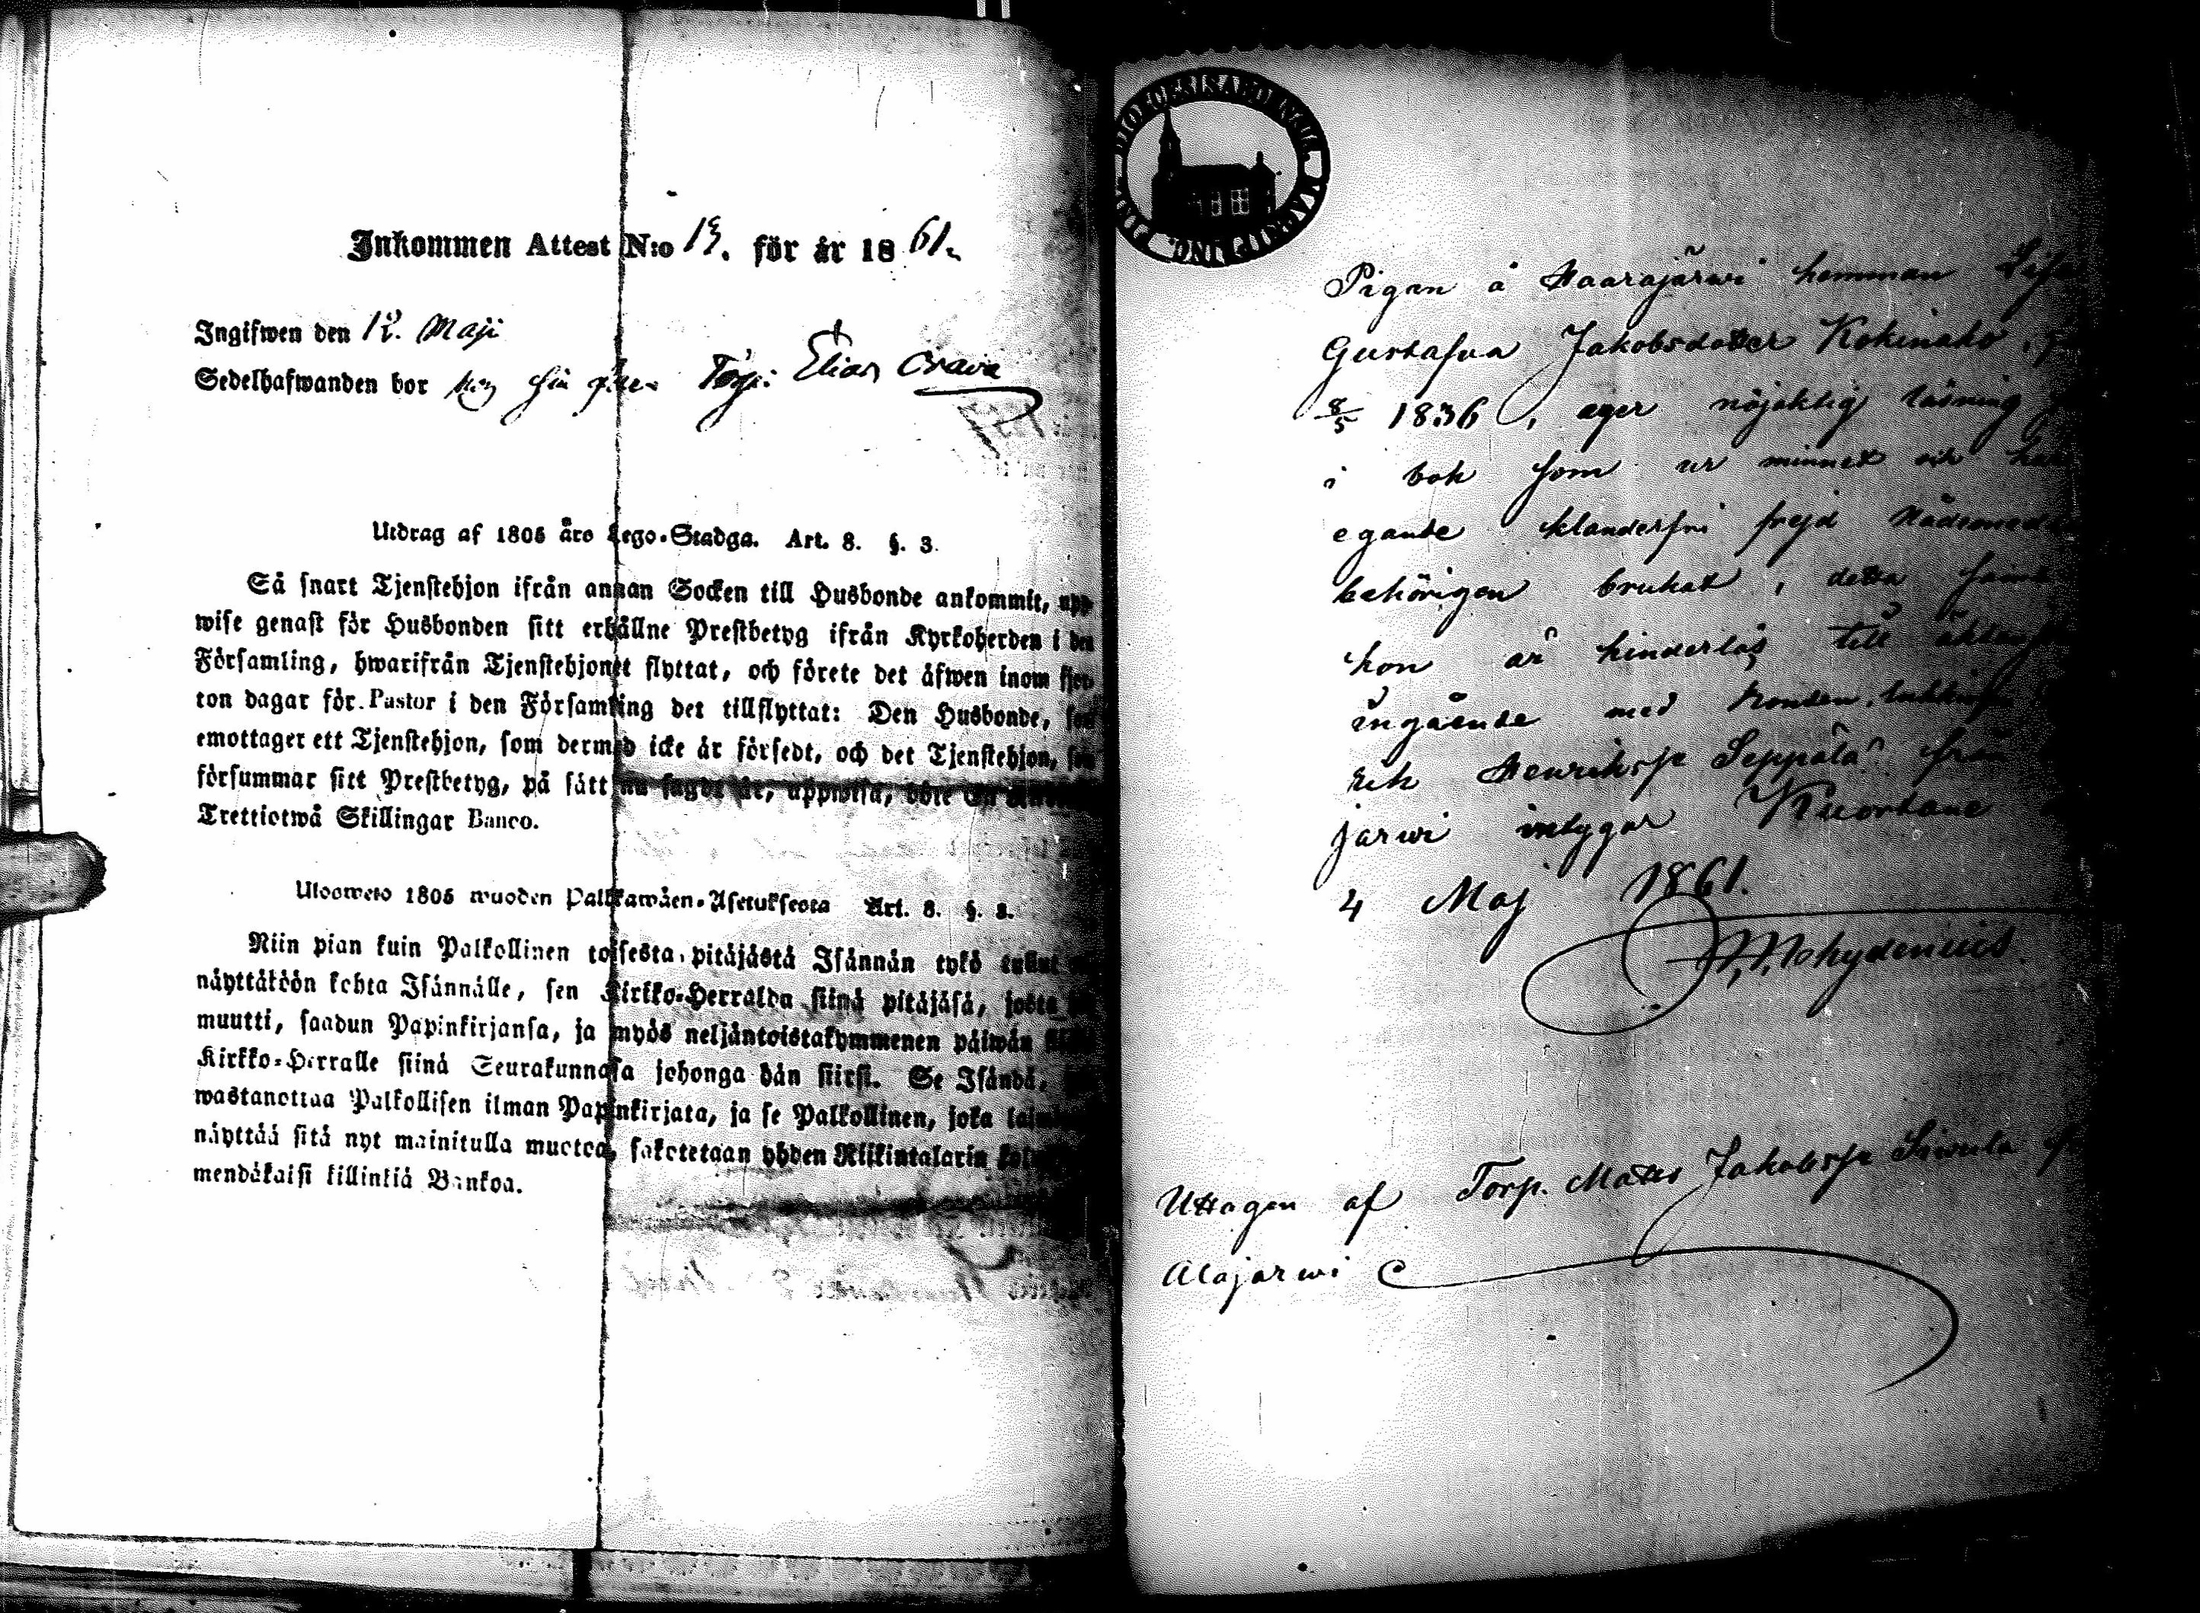 Inkommen Attest N:o 13. för år 1861.
Ingifwen den 12. Maji
Sedelhafwanden bor hos Torp: Elias
Utdrag af 1805 års Lego-Stadga. Art. 8. §. 3.
Så snart Tjenstehjon ifrån annan Socken till Husbonde ankommit, upp-
wise genast för Husbonden sitt erhållne Prestbetyg ifrån Kyrkoherden i den
Församling, hwarifrån Tjenstehjonet flyttat, och förete det äfwen inom fjor-
ton dagar för Pastor i den Församling det tillflyttat: Den Husbonde, som
emottager ett Tjenstehjon, som dermed icke är försedt, och det Tjenstehjon, som
försummar sitt Prestbetyg, på sätt nu sagdt är, uppwisa, böte En
Trettiotwå Skillingar Banco.
Ulosweto 1805 wuoden Palkkawäen-Asetuksesta Art. 8. §. 3.
Niin pian kuin Palkollinen toisesta pitäjästä Isännän tykö tullut
näyttäköön kohta Isännälle, sen Kirkko-Herralda siinä pitäjäsä, josta
muutti, saadun Papinkirjansa, ja myös neljäntoistakymmenen päiwän
Kirkko-Herralle siinä Seurakunnasa johonga hän siirsi. Se Isändä,
wastanottaa Palkollisen ilman Papinkirjata, ja se Palkollinen, joka
näyttää sitä nyt mainitulla muotoa, sakotetaan yhden Riikintalarin
mendäkaisi killinkiä Bankoa.
DIOECESIS ABOENSIS
Pigan å Haarajärwi hemman
Gustafva Jakobsdotter Kokinaho,
8/5 1836, eger nöjaktig läsning
i bok som ur minnet och
egande klanderfri frejd Nådemedlen
behörigen brukat,
hon är hinderlös till
ingående med
Erik Henriksson Seppälä från
järwi intygar Kuortane
4 Maj 1861.
Uttagen af Torp. Matts Jakobsson
Alajärwi